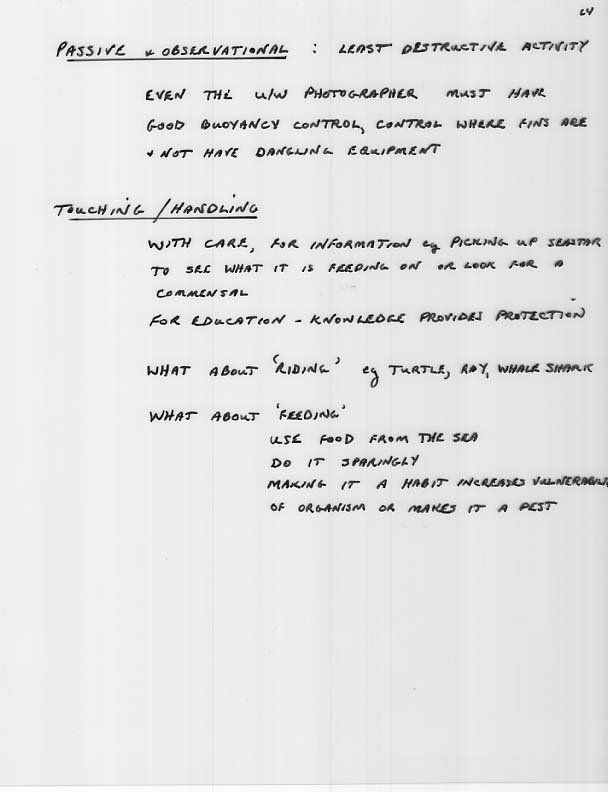 L4
PASSIVE & OBSERVATIONAL : LEAST DESTRUCTIVE ACTIVITY
EVEN THE U/W PHOTOGRAPHER MUST HAVE
GOOD BUOYANCY CONTROL, CONTROL WHERE FINS ARE
& NOT HAVE DANGLING EQUIPMENT
TOUCHING / HANDLING
WITH CARE, FOR INFORMATION eg PICKING UP SEASTAR
TO SEE WHAT IT IS FEEDING ON OR LOOK FOR A
COMMENSAL
FOR EDUCATION - KNOWLEDGE PROVIDES PROTECTION
WHAT ABOUT 'RIDING' eg TURTLE, RAY, WHALE SHARK
WHAT ABOUT 'FEEDING'
USE FOOD FROM THE SEA
DO IT SPARINGLY
MAKING IT A HABIT INCREASES VULNERABILI
OF ORGANISM OR MAKES IT A PEST